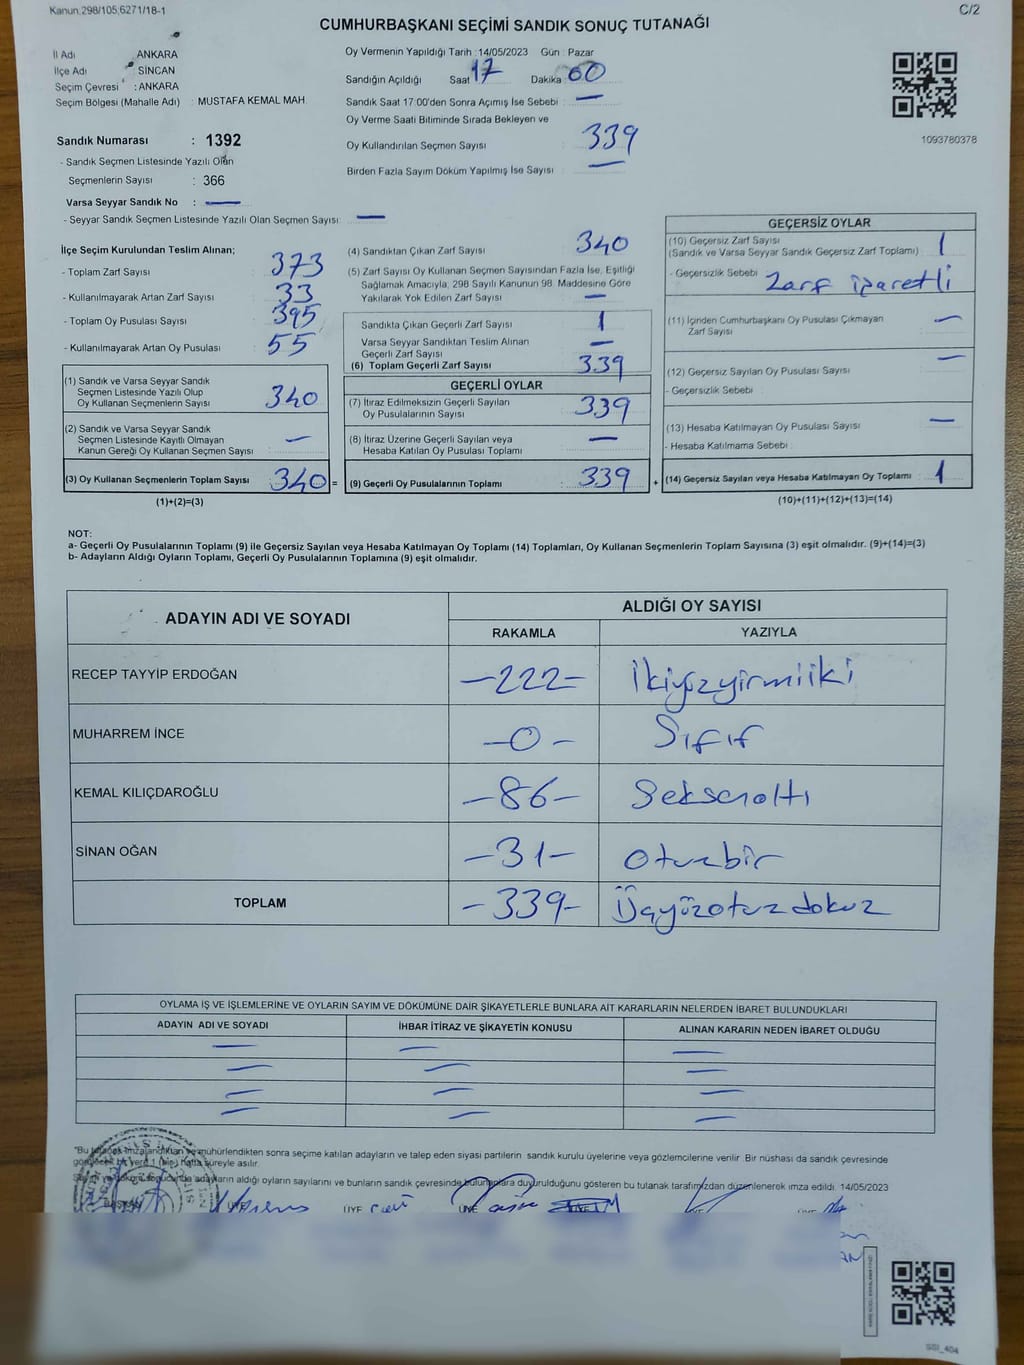 Kanun.298/105,6271/18-1
C/2
CUMHURBAŞKANI SEÇİMİ SANDIK SONUÇ TUTANAĞI
İl Adı : ANKARA
İlçe Adı : SİNCAN
Seçim Çevresi : ANKARA
Seçim Bölgesi (Mahalle Adı) : MUSTAFA KEMAL MAH.
Sandık Numarası : 1392
- Sandık Seçmen Listesinde Yazılı Olan
Seçmenlerin Sayısı : 366
Varsa Seyyar Sandık No : —
- Seyyar Sandık Seçmen Listesinde Yazılı Olan Seçmen Sayısı: —
Oy Vermenin Yapıldığı Tarih :14/05/2023 Gün : Pazar
Sandığın Açıldığı Saat 17 Dakika 00
Sandık Saat 17:00'den Sonra Açımış İse Sebebi : —
Oy Verme Saati Bitiminde Sırada Bekleyen ve
Oy Kullandırılan Seçmen Sayısı : 339
Birden Fazla Sayım Döküm Yapılmış İse Sayısı : —
1093780378
İlçe Seçim Kurulundan Teslim Alınan;
- Toplam Zarf Sayısı : 373
- Kullanılmayarak Artan Zarf Sayısı : 33
- Toplam Oy Pusulası Sayısı : 395
- Kullanılmayarak Artan Oy Pusulası : 55
(1) Sandık ve Varsa Seyyar Sandık
Seçmen Listesinde Yazılı Olup
Oy Kullanan Seçmenlerin Sayısı : 340
(2) Sandık ve Varsa Seyyar Sandık
Seçmen Listesinde Kayıtlı Olmayan
Kanun Gereği Oy Kullanan Seçmen Sayısı : —
(3) Oy Kullanan Seçmenlerin Toplam Sayısı : 340 =
(1)+(2)=(3)
(4) Sandıktan Çıkan Zarf Sayısı : 340
(5) Zarf Sayısı Oy Kullanan Seçmen Sayısından Fazla İse, Eşitliği
Sağlamak Amacıyla, 298 Sayılı Kanunun 98. Maddesine Göre
Yakılarak Yok Edilen Zarf Sayısı : —
Sandıkta Çıkan Geçerli Zarf Sayısı : 1
Varsa Seyyar Sandıktan Teslim Alınan
Geçerli Zarf Sayısı : —
(6) Toplam Geçerli Zarf Sayısı : 339
GEÇERLİ OYLAR
(7) İtiraz Edilmeksizin Geçerli Sayılan
Oy Pusulalarının Sayısı : 339
(8) İtiraz Üzerine Geçerli Sayılan veya
Hesaba Katılan Oy Pusulası Toplamı : —
(9) Geçerli Oy Pusulalarının Toplamı : 339 +
GEÇERSİZ OYLAR
(10) Geçersiz Zarf Sayısı : 1
(Sandık ve Varsa Seyyar Sandık Geçersiz Zarf Toplamı)
- Geçersizlik Sebebi : Zarf işaretli
(11) İçinden Cumhurbaşkanı Oy Pusulası Çıkmayan
Zarf Sayısı : —
(12) Geçersiz Sayılan Oy Pusulası Sayısı : —
- Geçersizlik Sebebi :
(13) Hesaba Katılmayan Oy Pusulası Sayısı : —
- Hesaba Katılmama Sebebi :
(14) Geçersiz Sayılan veya Hesaba Katılmayan Oy Toplamı : 1
(10)+(11)+(12)+(13)=(14)
NOT:
a- Geçerli Oy Pusulalarının Toplamı (9) ile Geçersiz Sayılan veya Hesaba Katılmayan Oy Toplamı (14) Toplamları, Oy Kullanan Seçmenlerin Toplam Sayısına (3) eşit olmalıdır. (9)+(14)=(3)
b- Adayların Aldığı Oyların Toplamı, Geçerli Oy Pusulalarının Toplamına (9) eşit olmalıdır.
ADAYIN ADI VE SOYADI
ALDIĞI OY SAYISI
RAKAMLA YAZIYLA
RECEP TAYYİP ERDOĞAN -222- İkiyüzyirmiiki
MUHARREM İNCE -0- Sıfır
KEMAL KILIÇDAROĞLU -86- Seksenaltı
SİNAN OĞAN -31- Otuzbir
TOPLAM -339- Üçyüzotuzdokuz
OYLAMA İŞ VE İŞLEMLERİNE VE OYLARIN SAYIM VE DÖKÜMÜNE DAİR ŞİKAYETLERLE BUNLARA AİT KARARLARIN NELERDEN İBARET BULUNDUKLARI
ADAYIN ADI VE SOYADI İHBAR İTİRAZ VE ŞİKAYETİN KONUSU ALINAN KARARIN NEDEN İBARET OLDUĞU
— — —
— — —
— — —
— — —
"Bu tutanak imzalandıktan ve mühürlendikten sonra seçime katılan adayların ve talep eden siyasi partilerin sandık kurulu üyelerine veya gözlemcilerine verilir. Bir nüshası da sandık çevresinde
görülecek bir yere 1 (bir) hafta süreyle asılır.
Sayım ve döküm sonucunda adayların aldığı oyların sayılarını ve bunların sandık çevresinde bulunanlara duyurulduğunu gösteren bu tutanak tarafımızdan düzenlenerek imza edildi. 14/05/2023
BAŞKAN ÜYE ÜYE ÜYE ÜYE
SSI_404